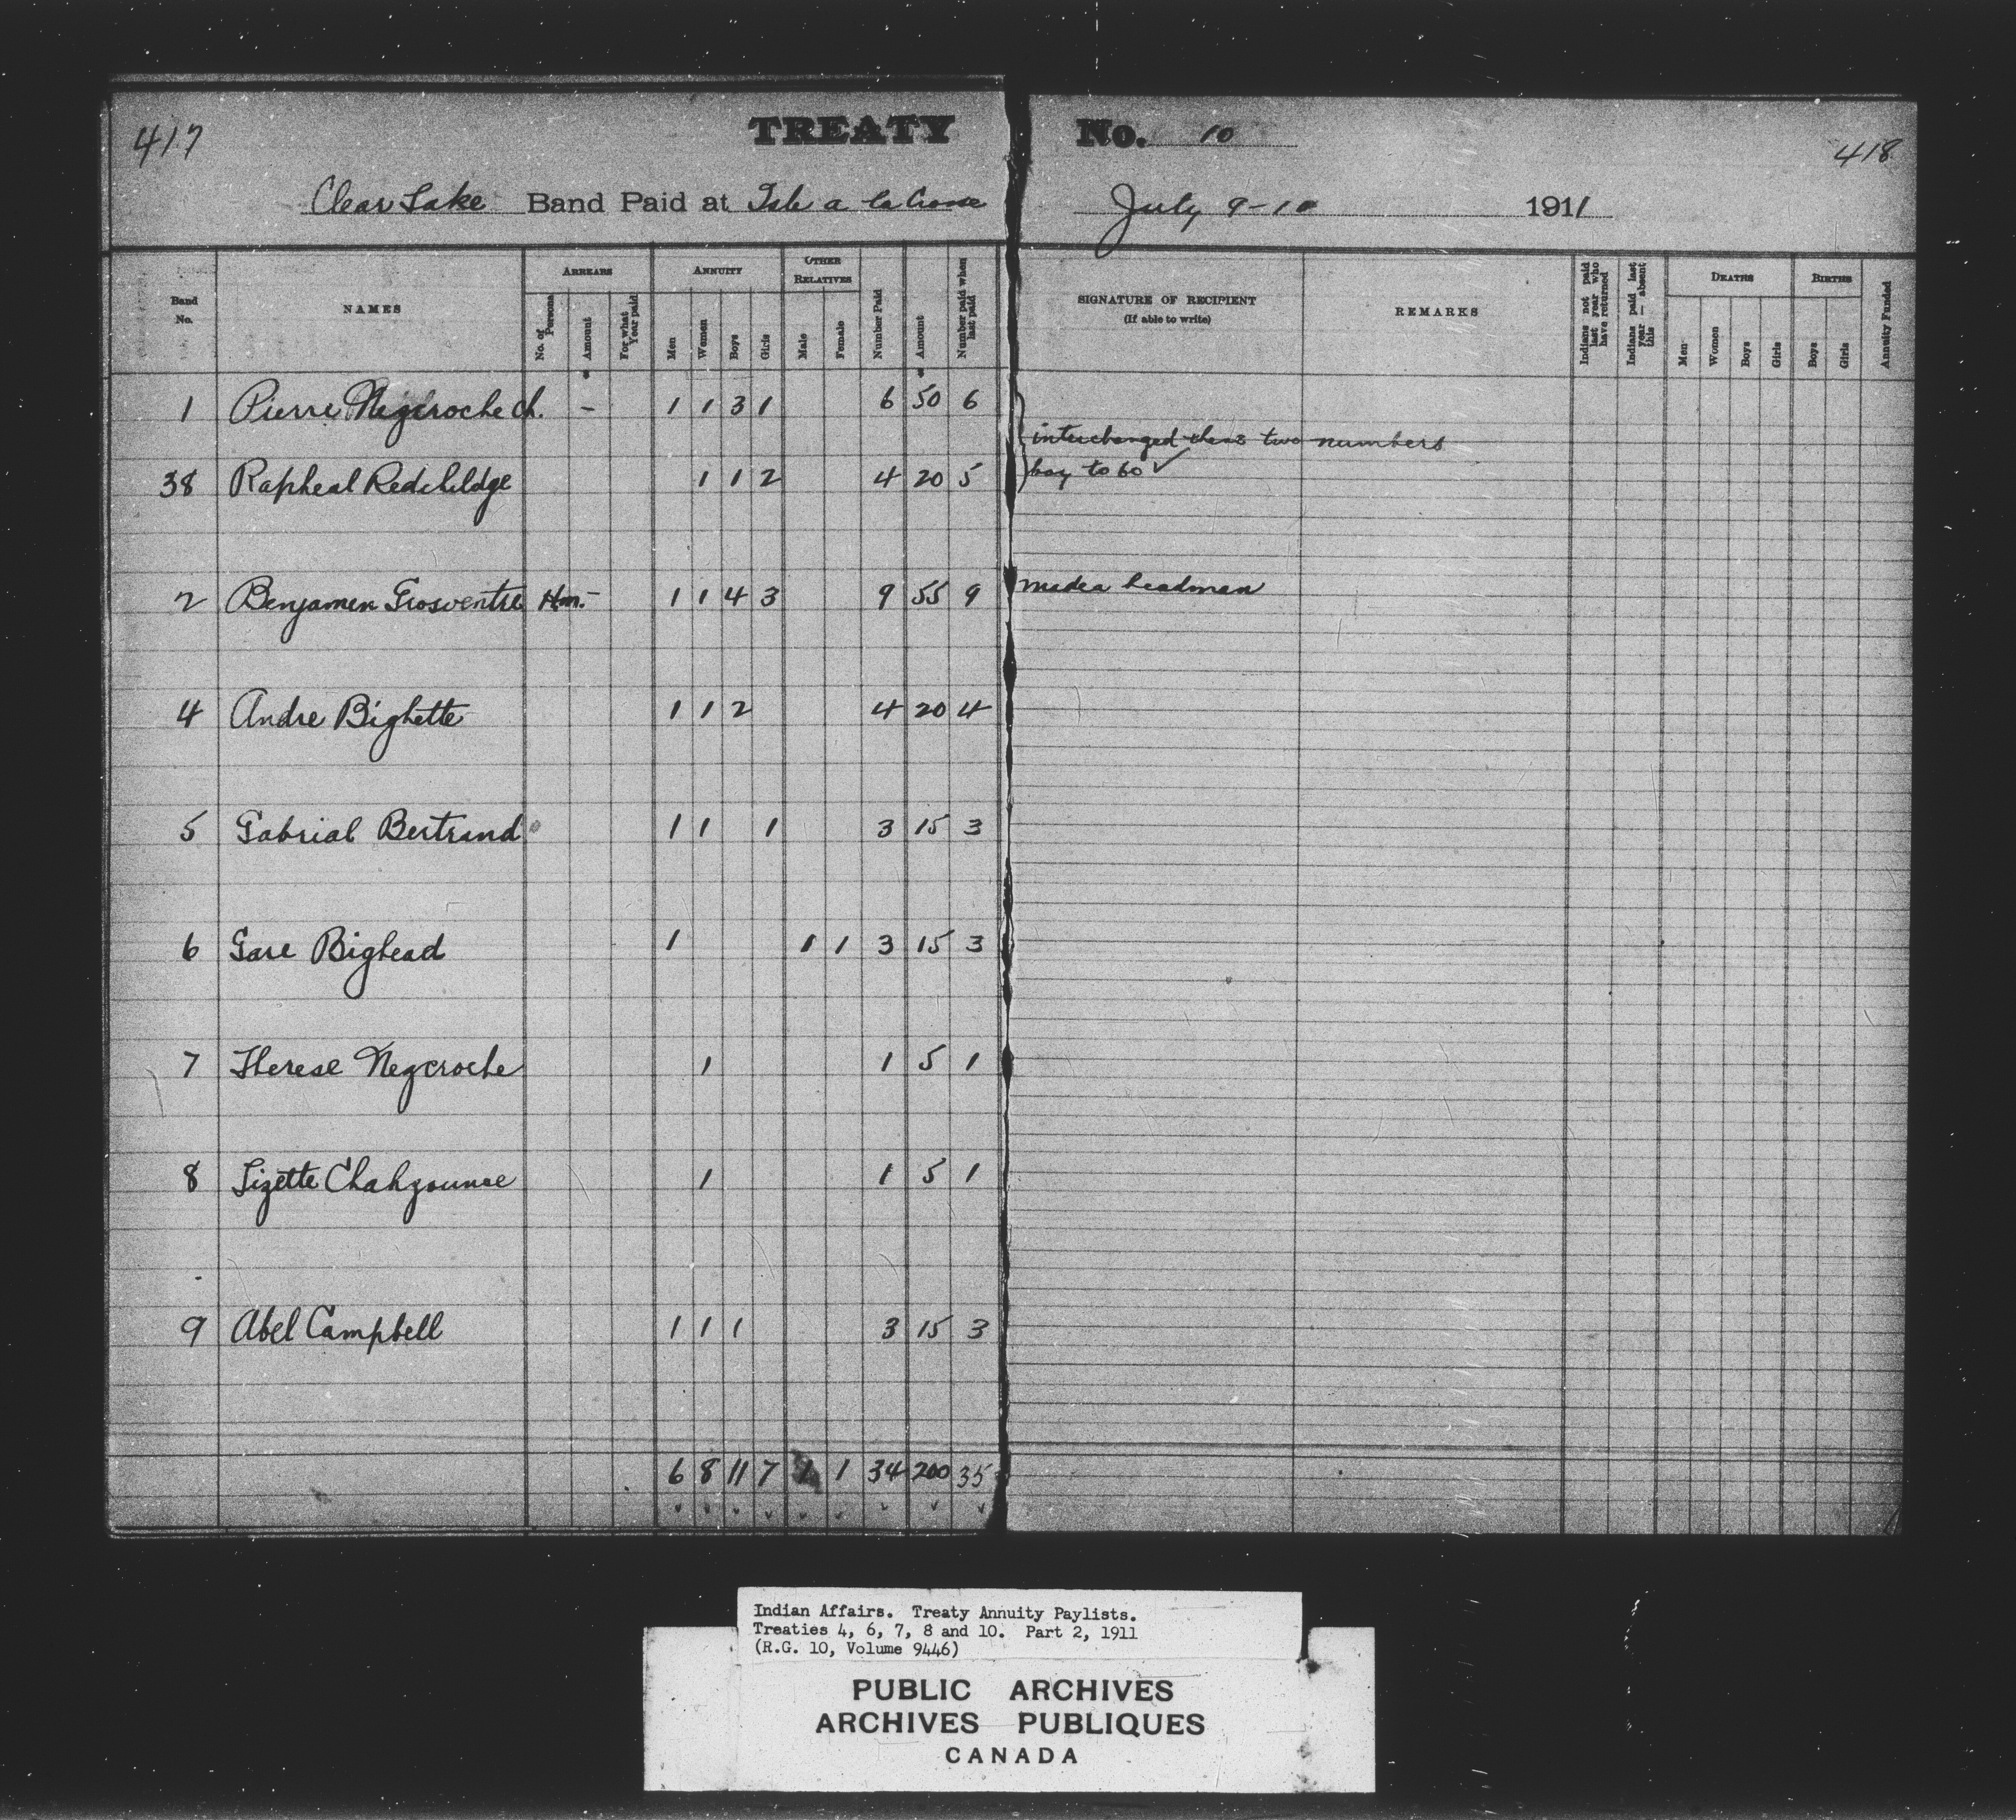 417
TREATY No. 10
418
Clear Lake Band Paid at Isle a la Crosse July 9-10 1911
Band No.
NAMES
ARREARS
No. of Persons
Amount
For what Year paid
ANNUITY
Men
Women
Boys
Girls
OTHER RELATIVES
Male
Female
Number Paid
Amount
Number paid when last paid
SIGNATURE OF RECIPIENT
(If able to write)
REMARKS
Indians not paid last year who have returned
Indians paid last year — absent this
DEATHS
Men
Women
Boys
Girls
BIRTHS
Boys
Girls
Annuity Funded
1 Pierre Negcroche Ch. - 1 1 3 1 6 50 6
interchanged these two numbers
38 Rapheal Redchildge 1 1 2 4 20 5 boy to 60 ✓
2 Benjamen Grosventre Hm. - 1 1 4 3 9 55 9 made a headman
4 Andre Bighette 1 1 2 4 20 4
5 Gabrial Bertrand 1 1 1 3 15 3
6 Gare Bighead 1 1 1 3 15 3
7 Therese Negcroche 1 1 5 1
8 Lizette Chahzounse 1 1 5 1
9 Abel Campbell 1 1 1 3 15 3
6 8 11 7 1 1 34 200 35
Indian Affairs. Treaty Annuity Paylists.
Treaties 4, 6, 7, 8 and 10. Part 2, 1911
(R.G. 10, Volume 9446)
PUBLIC ARCHIVES
ARCHIVES PUBLIQUES
CANADA